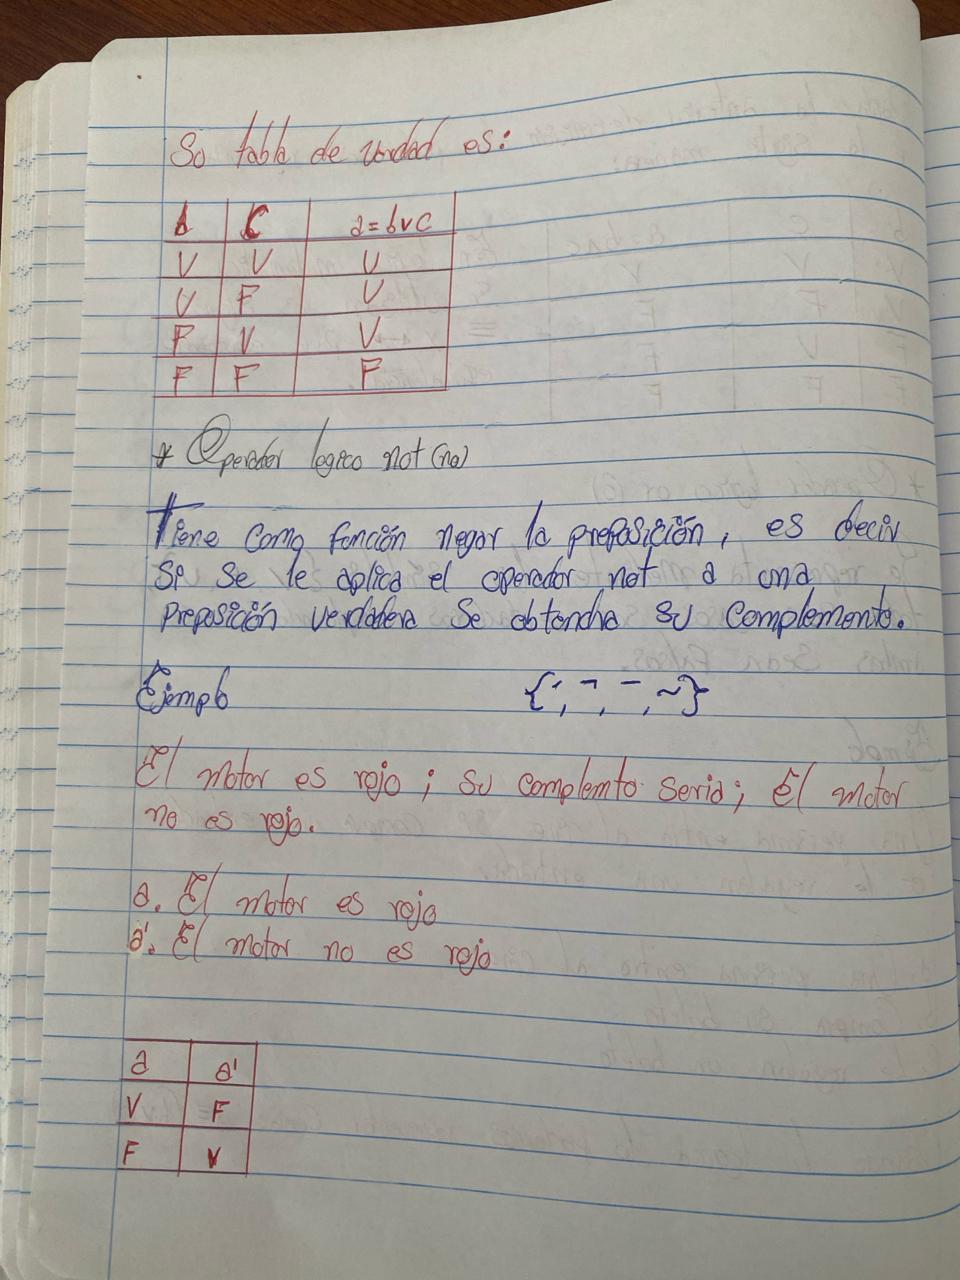 Su tabla de verdad es:
b C a=bvc
V V V
V F V
F V V
F F F
* Operador logico not (no)
Tiene como función negar la preposición, es decir
si se le aplica el operador not a una
preposición verdadera se obtendra su complemento.
Ejemplo {', ¬, ‾, ~}
El motor es rojo; su complemto seria; El motor
no es rojo.
a. El motor es rojo
a'. El motor no es rojo
a a'
V F
F V